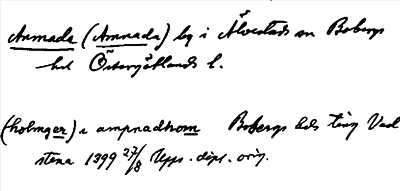 Amnada (Amnada) by i Älvestads sn Bobergs
hd Östergötlands l.
(holmger) i ampnadhom Bobergs hds ting Vad
stena 1399 27/8 Upps. dipl. orig.